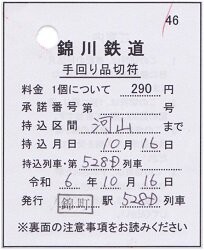 46
錦川鉄道
手回り品切符
料金 1個について 290 円
承諾番号第 号
持込区間 河山 まで
持込月日 10月16日
持込列車・第 528D 列車
令和 6年10月16日
発行 錦町 駅 528D 列車
※裏面の注意事項をお読みください